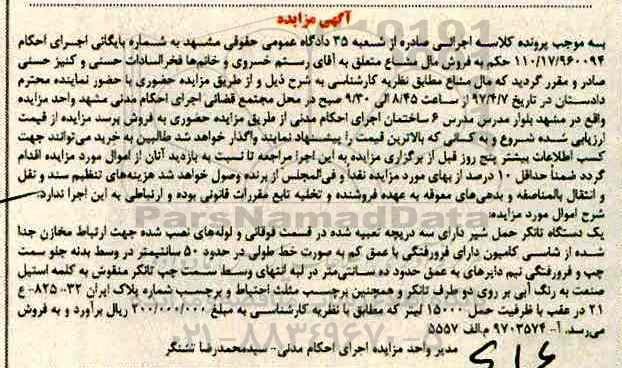 آگهی مزایده
بـه موجب پرونده کلاسـه اجرائـی صادره از شـعبه ۳۵ دادگاه عمومی حقوقی مشـهد به شـماره بایگانی اجـرای احکام
۱۱۰/۱۷/۹۶۰۰۹۴ حکم به فروش مال مشـاع متعلق به آقای رسـتم خسروی و خانم‌ها فخرالسادات حسنی و کنیز حسنی
صادر و مقرر گردید که مال مشاع مطابق نظریه کارشناسی به شرح ذیل و از طریق مزایده حضوری با حضور نماینده محترم
دادستان در تاریخ ۹۷/۴/۷ از ساعت ۸/۴۵ الی ۹/۳۰ صبح در محل مجتمع قضائی اجرای احکام مدنی مشهد واحد مزایده
واقع در مشهد بلوار مدرس مدرس ۶ ساختمان اجرای احکام مدنی از طریق مزایده حضوری به فروش برسد مزایده از قیمت
ارزیابی شـده شـروع و به کسانی که بالاترین قیمت را پیشـنهاد نمایند واگذار خواهد شد طالبین به خرید می‌توانند جهت
کسب اطلاعات بیشتر پنج روز قبل از برگزاری مزایده به این اجرا مراجعه تا نسبت به بازدید آنان از اموال مورد مزایده اقدام
گردد ضمناً حداقل ۱۰ درصد از بهای مورد مزایده نقداً و فی‌المجلس از برنده وصول خواهد شد هزینه‌های تنظیم سند و نقل
و انتقال بالمناصفه و بدهی‌های معوقه به عهده فروشنده و تخلیه تابع مقررات قانونی بوده و ارتباطی به این اجرا ندارد.
شرح اموال مورد مزایده:
یک دستگاه تانکر حمل شیر دارای سه دریچه تعبیه شده در قسمت فوقانی و لوله‌های نصب شده جهت ارتباط مخازن جدا
شده از شاسی کامیون دارای فرورفتگی با عمق کم به صورت خط طولی در حدود ۵۰ سانتیمتر در وسط بدنه جلو سمت
چپ و فرورفتگی نیم دایره‌ای به عمق حدود ده سـانتی‌متر در لبه انتهای وسـط سـمت چپ تانکر منقوش به کلمه استیل
صنعت به رنگ آبی بر روی دو طرف تانکر و همچنین برچسب مثلث احتیاط و برچسب شماره پلاک ایران ۳۲-۸۲۵ ع
۲۱ در عقب با ظرفیت حمل ۱۵۰۰۰ لیتر که مطابق با نظریه کارشناسی به مبلغ ۲۰۰/۰۰۰/۰۰۰ ریال برآورد و به فروش
می‌رسد. آ- ۹۷۰۳۵۷۴ م.الف ۵۵۵۷
مدیر واحد مزایده اجرای احکام مدنی- سیدمحمدرضا تشتگر
ParsNamadData
۰۲۱-۸۸۳۴۹۶۷۰-۵